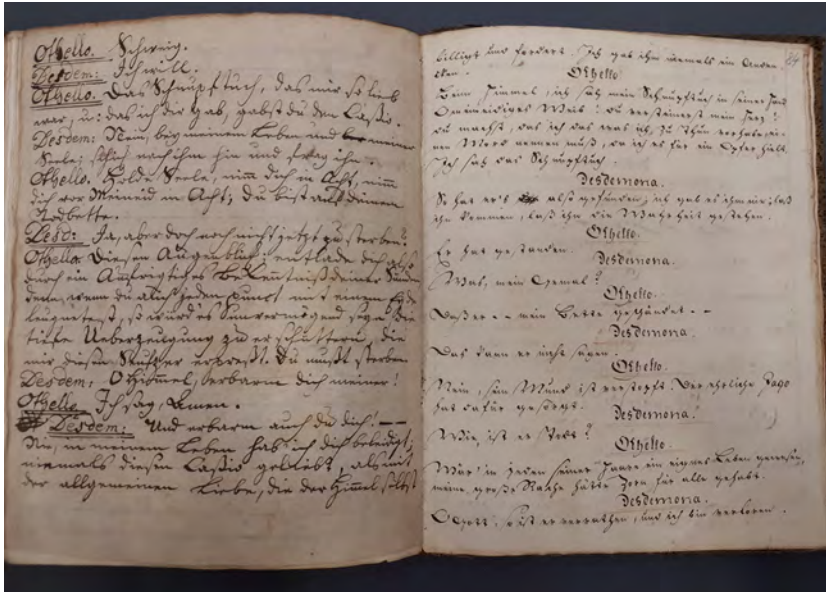 Othello. Schweig.
Desdem: Ich will.
Othello. Das Schnupftuch, das mir so lieb
war, u: das ich dir gab, gabst du dem Cassio.
Desdem: Nein, bey meinem Leben und meiner
Seele; schick nach ihm hin und frag ihn.
Othello. Holde Seele, nimm dich in Acht, nimm
dich vor Meineid in Acht; du bist auf deinem
Todbette.
Desd: Ja, aber doch noch nicht jetzt zu sterben?
Othello: Diesen Augenblick; entlade dich also
durch ein Aufrigtiches Bekenntniß deiner Sünden
denn, wenn du auch jeden punct mit einem Eyde
leugnetest, so würd es unvermögend seyn die
tiefe Ueberzeugung zu erschüttern, die
mir diesen Seufzer erpreßt. Du mußt sterben
Desdem: O Himmel, erbarm dich meiner!
Othello. Ich sag, Amen.
Desdem: Und erbarm auch du dich! — —
Nie, in meinem Leben hab ich dich beleidigt;
niemals diesen Cassio geliebt, als mit
der allgemeinen Liebe, die der Himmel selbst
billigt und fordert. Ich gab ihm niemals ein Anden
ken.
Othello.
Beim Himmel, ich sah mein Schnupftuch in seiner Hand
O meineidiges Weib! du versteinerst mein Herz!
du machst, das ich das was ich zu thun vorhabe, ei-
nen Mord nennen muß, da ich es für ein Opfer hielt.
Ich sah das Schnupftuch.
Desdemona.
So hat er's also gefunden; ich gab es ihm nie; laß
ihn kommen, laß ihn die Wahrheit gestehen.
Othello.
Er hat gestanden.
Desdemona.
Was, mein Gemal?
Othello.
Daß er - - mein Bette geschändet. - -
Desdemona.
Das kann er nicht sagen.
Othello.
Nein, sein Mund ist verstopft. Der ehrliche Jago
hat dafür gesorgt.
Desdemona.
Wie, ist er Todt?
Othello.
Wär' in jeden seiner Haare ein eignes Leben gewesen,
meine große Rache hätte Zorn für alle gehabt.
Desdemona.
O Gott, so ist er verrathen, und ich bin verloren.